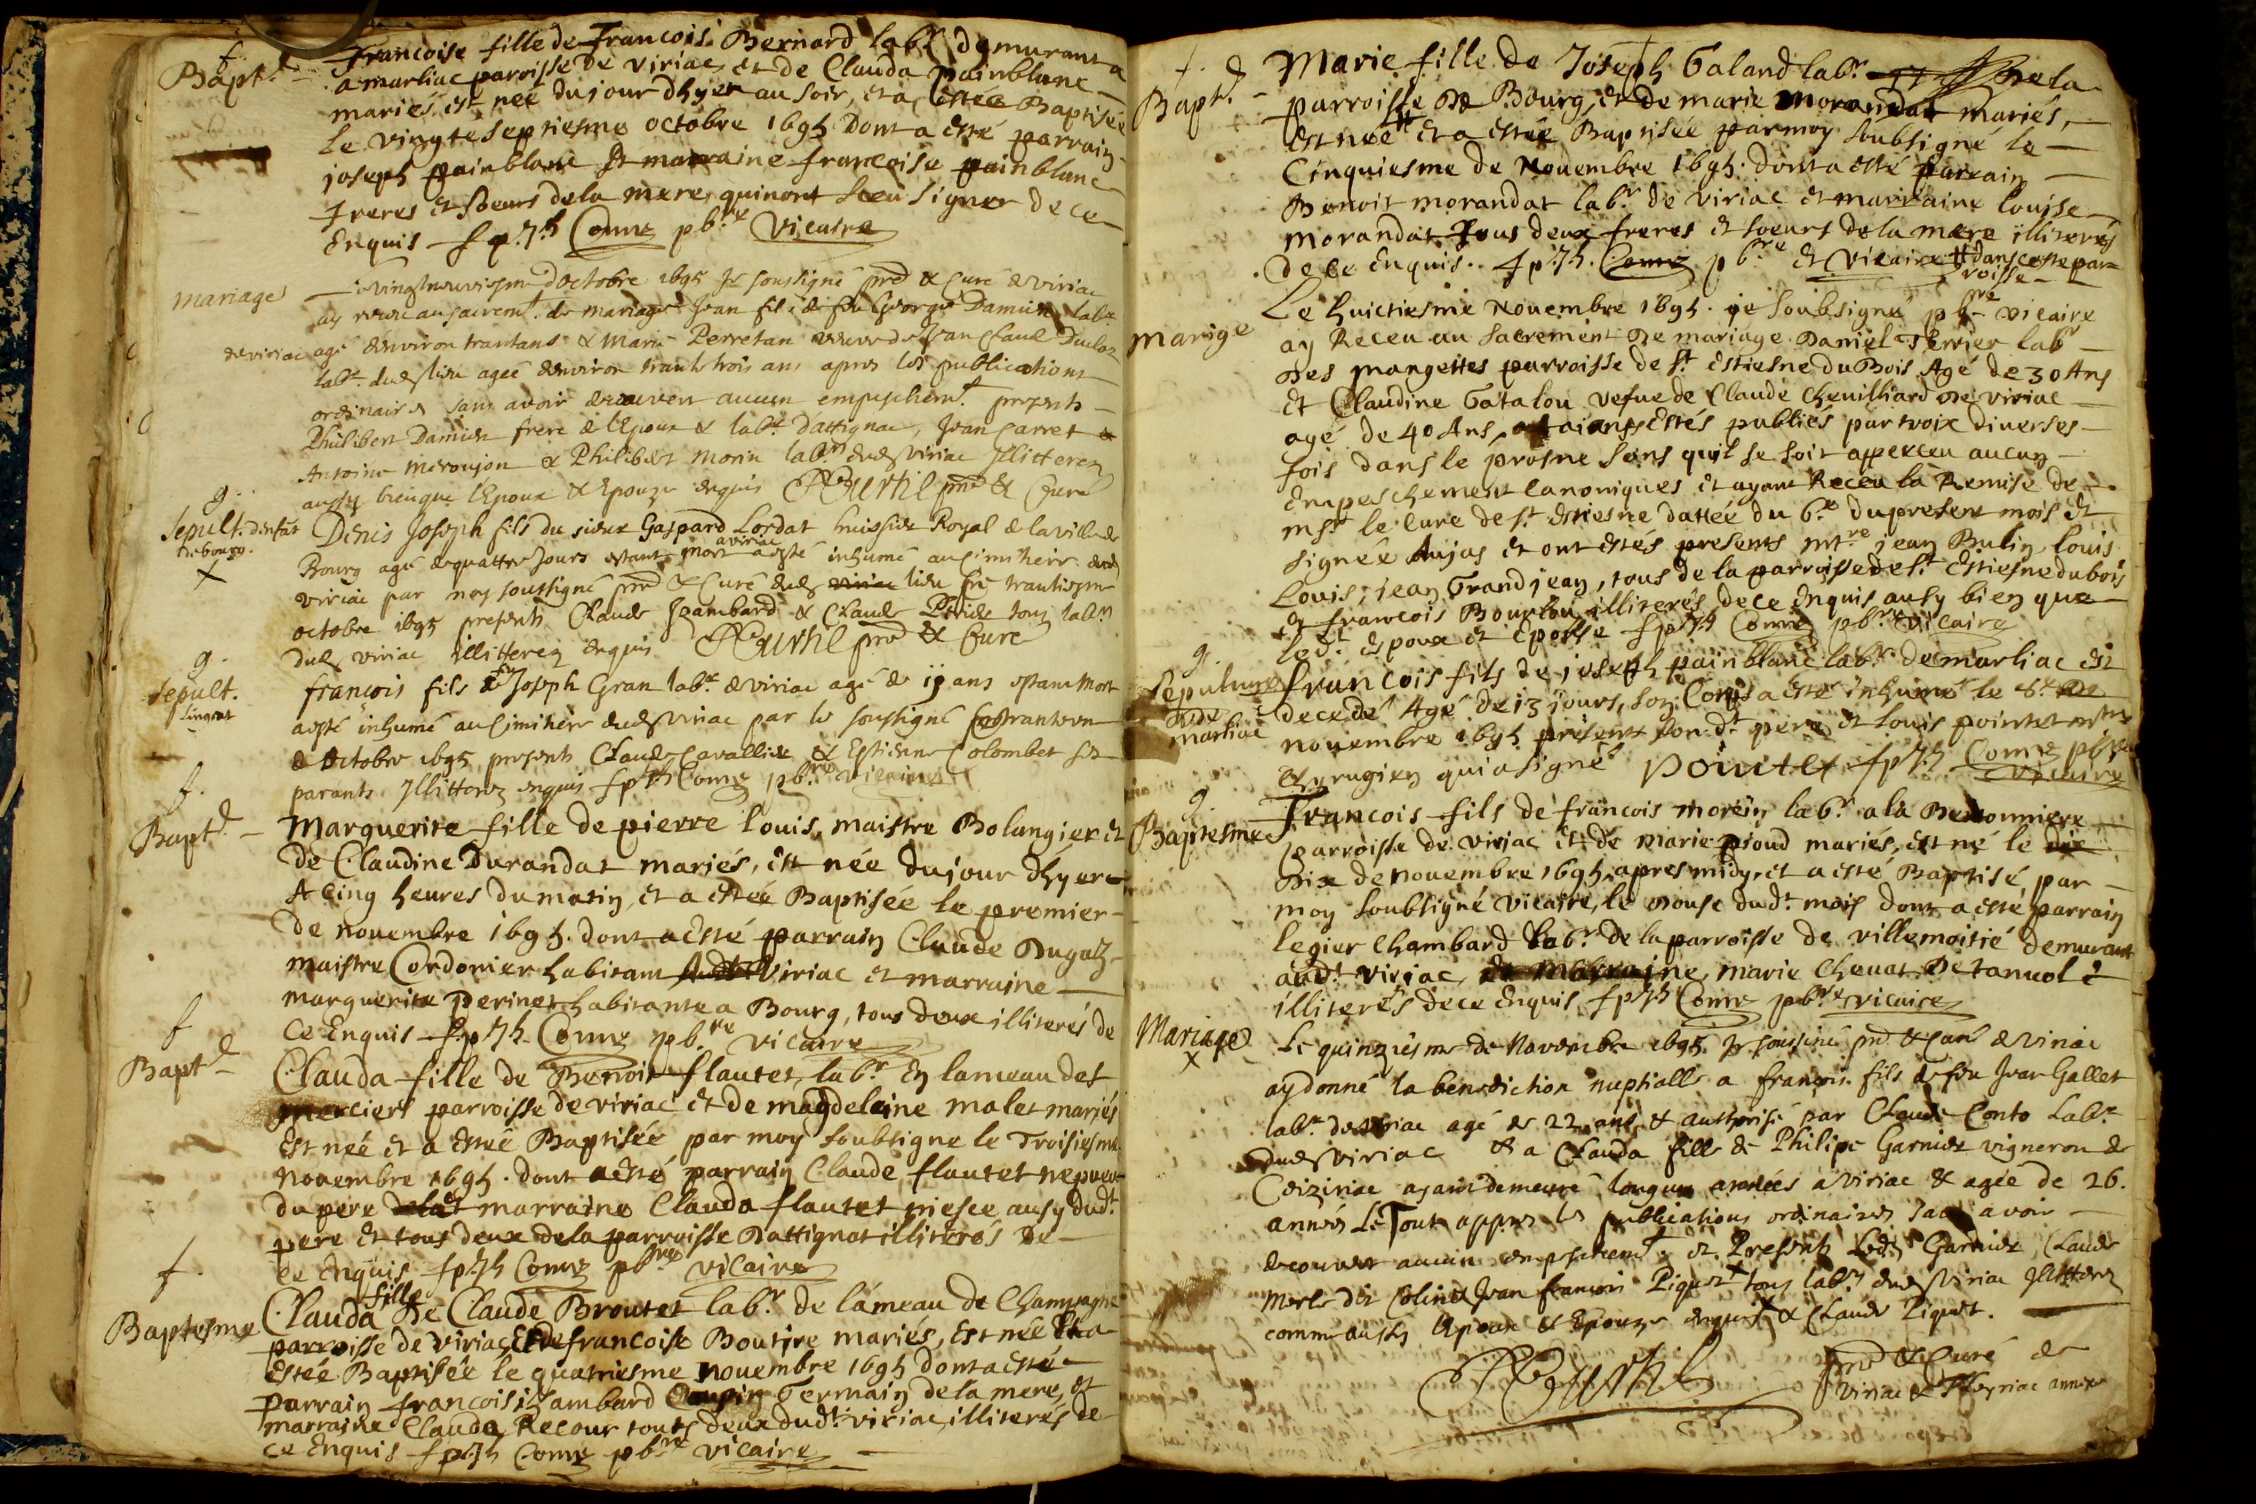 f.
Bapt.e
francoise fille de francois Bernard lab.r demurant a
a marliac paroisse de viriac et de Clauda painblanc
mariés est née du jour dhyer au soir, et a estée Baptisée
le vingte septiesme octobre 1695 dont a esté parrain
joseph painblanc et marraine francoise painblanc
freres et soeurs de la mere, qui nont sceu signer de ce
Enquis pb.re Vicaire
mariage
vingtneuviesme d'octobre 1695 Je soussigné prê & Curé de viriac
ay receu au sacrem.t de mariage Jean fils de feu George Damien lab.r
de viriac agé denviron trantans & Marie Perretan veuve de Jean Claude
lab.r dud lieu agée denviron trante trois ans apres les publications
ordinaires sans avoir decouvert aucun empeschem.t presents
Philibert Damien frere de l'Epoux & lab.r d'attignac, Jean Carret &
Antoine & Philibert Morin lab.rs dud viriac Illitterez
aussy bien que l'Epoux & Epouze enquis prê & Curé
g.
Sepult. d'enfant
de bourg.
x
Denis Joseph fils du sieur Gaspard Lordat huissier Royal de la ville de
Bourg agé de quattre Jours estant mort a viriac a esté inhumé au Cimitiere dud
viriac par moy soussigné prê & Curé dud viriac lieu ce trantiesme
octobre 1695 presents Claude Chambard & Claude tous lab.rs
dud viriac illitterez enquis prê & Curé
g.
Sepult.
francois fils de feu Joseph Gran lab.r de viriac agé de ans estant Mort
a esté inhumé au Cimitiere dud viriac par le soussigné ce tranteun
d'octobre 1695 presents Claude Cavallier & Estienne Colombet ses
parants Illitterez enquis pb.re vicaire
f.
Bapt.e
Marguerite fille de pierre Louis, maistre Bolangier et
de Claudine Durandat mariés, est née du jour dhyer
A cinq heures du matin, et a estée Baptisée le premier
de novembre 1695. dont a esté parrain Claude Dugatz
maistre Cordonier habitant Viriac et marraine
marguerite perinet habitante a Bourg, tous deux illiterés de
ce Enquis pb.re vicaire
f
Bapt.e
Clauda fille de Benoit flautet, lab.r En lameau des
merciers parroisse de viriac et de magdeleine malet mariés
est née et a estée Baptisée par moy soubsigne le Troisiesme
Novembre 1695. dont a esté parrain Claude flautet nepveu
du pere marraine Clauda flautet niesce ausy dud.t
pere et tous deux de la parroisse Dattignat illiterés De
ce Enquis pb.re vicaire
f.
Baptesme
Clauda fille De Claude Broutet lab.r de lameau de Champagne
parroisse de viriac et de francoise Boutire mariés, est née Et a
estée Baptisée le quatriesme novembre 1695 dont a esté
parrain francois chambard Cousin Germain de la mere, et
marraine Clauda Recour touts deux dud.t viriac, illiterés de
ce Enquis pb.re vicaire
f.
Bapt.e
Marie fille de Joseph Galand lab.r de la
parroisse De Bourg, et de marie morandat mariés,
est née et a estée Baptisée par moy soubsigné le
Cinquiesme de Novembre 1695. dont a esté parrain
Benoit morandat lab.r de viriac et marraine louise
morandat, tous deux freres et soeurs de la mere illiterés
de ce Enquis. pb.re et vicaire # dans ceste par=
roisse
marige
Le huictiesme Novembre 1695. je soubsigné pb.re vicaire
ay Receu au sacrement De mariage Daniel Terrier lab.r
Des mangettes parroisse de S.t estiesne du Bois Agé de 30 Ans
et Claudine Gatalou vefue de Claude Chevilliard De viriac
agé de 40 Ans, estés publiés par troix diverses
fois dans le prosne sens quil se soit apperceu aucun
Empeschement canoniques et ayant Receu la Remise de
ms.r le Cure de S.t estiesne dattée du 6.e du present mois et
signée Anjas et ont estés presents jean Butin Louis
Louis, jean Grandjean, tous de la parroisse de S.t Estiesne du bois
et francois Bourbon illiterés de ce enquis ausy bien que
led.t espoux et Epouse pb.re vicaire
g.
Sepulture
de
marliac
francois fils de joseph painblanc lab.r de marliac est
decedé Agé de 13 jours, son Corps a esté inhumé le 8.e De
novembre 1695 present son d.t pere et Louis pointet
Chyrugien qui a signé Pointet pb.re
vicaire
g.
Baptesme
Francois fils de francois morein lab.r a la Bedonniere
parroisse de viriac et de marie pioud mariés, est né le dix
Dix de novembre 1695 apres midy, et a esté Baptisé par
moy soubsigné vicaire, le douse dud.t mois dont a esté parrain
legier Chambard lab.r de la parroisse de villemoitié demurant
aud.t viriac, et marraine, marie Chevat De
illiterés de ce Enquis pb.re vicaire
Mariage
x
Le quinziesme de Novembre 1695 Je soussigné prê & Curé de viriac
ay donné la benediction nuptialle a francois fils de feu Jean Gallet
lab.r de viriac agé de 22 ans & authorisé par Claude Conto Lab.r
dud viriac & a Clauda fille de Philipe Garnier vigneron de
Ceiziriac ayant demeuré longues années a viriac & agée de 26.
années Le Tout appres les publications ordinaires sans avoir
decouvert aucun empeschem.t & Presents Led. Garnier, Claude
Merle dit Colin & Jean francois Piquet x tous lab.rs dud viriac Illitterez
comme aussy Epoux & Epouze enquis x & Claude Piquet.
prê & Curé de
viriac & annexe